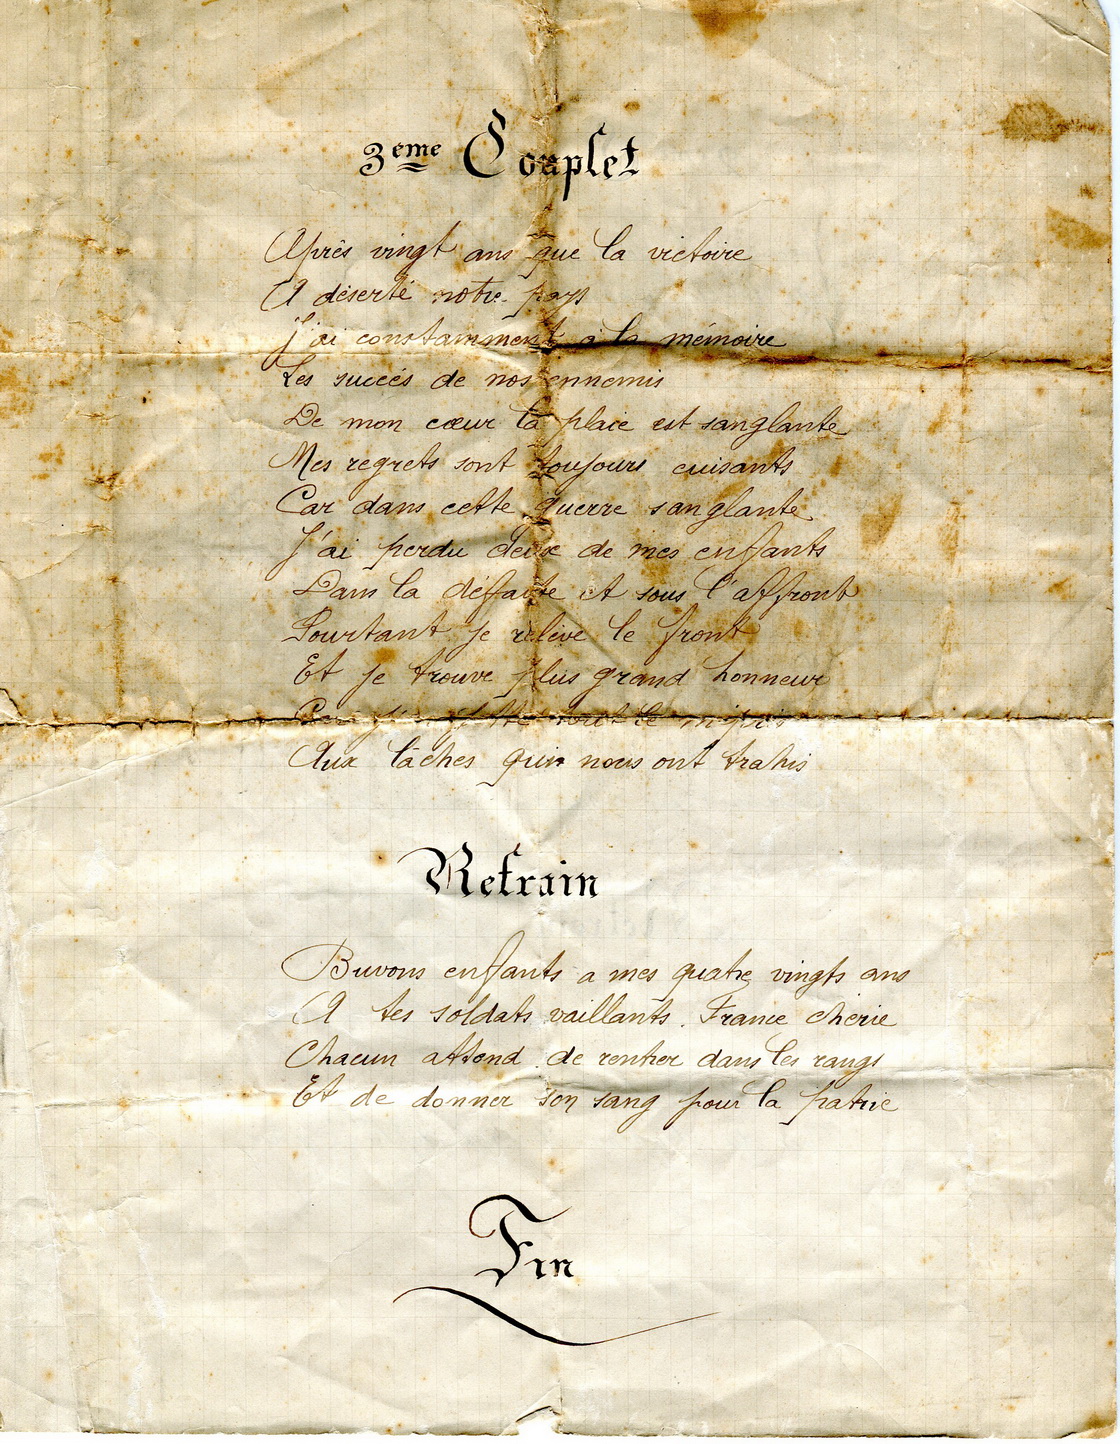 3ème Couplet
Après vingt ans que la victoire
A déserté notre pays
J'ai constamment à la mémoire
Les succés de nos ennemis
De mon cœur la plaie est sanglante
Mes regrets sont toujours cuisants
Car dans cette guerre sanglante
J'ai perdu deux de mes enfants
Dans la défaite et sous l'affront
Pourtant je relève le front
Et je trouve plus grand honneur
tout le mépris
Aux lâches qui nous ont trahis
Refrain
Buvons enfants a mes quatre vingts ans
A tes soldats vaillants France chérie
Chacun attend de rentrer dans les rangs
Et de donner son sang pour la patrie
Fin